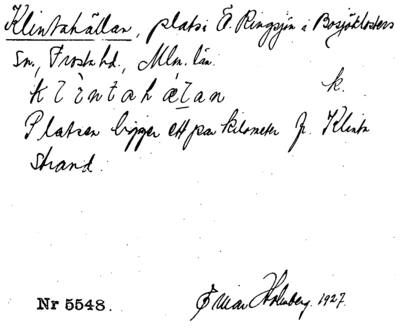 Klintahällan, plats i Ö. Ringsjön i Bosjöklosters
Sn., Frosta hd., Mlm. län.
klìntahæ̀lan k.
Platsen ligger ett par kilometer fr. Klinta
strand.
Nr 5548. Einar Holmberg. 1927.